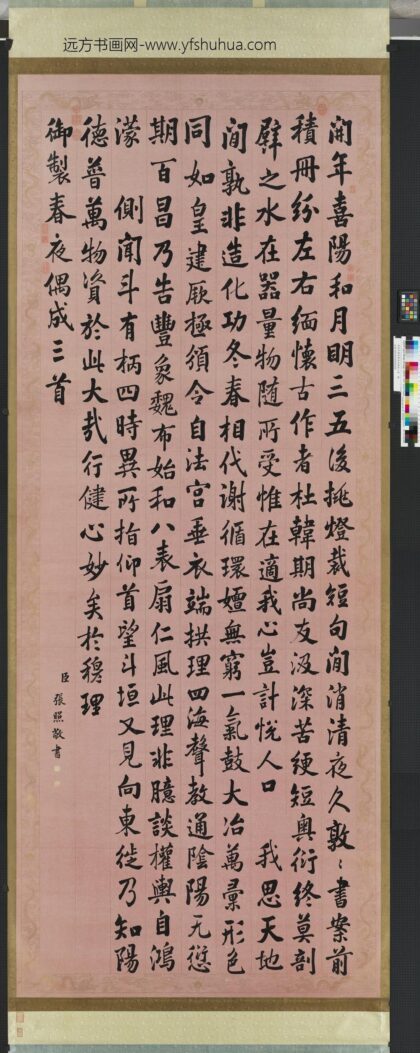 远方书画网-www.yfshuhua.com
開年喜陽和月明三五後挑燈裁短句閒消清夜久敦〻書案前
積冊紛左右緬懷古作者杜韓期尚友汲深苦綆短奧衍終莫剖
譬之水在器量物隨所受惟在適我心豈計悅人口 我思天地
間孰非造化功冬春相代謝循環嬗無窮一氣鼓大冶萬彙形色
同如皇建厥極須令自法宮垂衣端拱理四海聲教通陰陽无愆
期百昌乃告豐象魏布始和八表扇仁風此理非臆談權輿自鴻
濛 側聞斗有柄四時異所指仰首望斗垣又見向東徙乃知陽
德普萬物資於此大哉行健心妙矣於穆理
御製春夜偶成三首
臣張照敬書